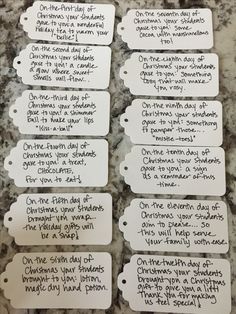 On the first day of
Christmas your students
gave to you: a wonderful
holiday tea to warm your
"bellie."
On the second day of
Christmas your students
gave to you: a candle.
a glow where sweet
smells will flow.
On the third day of
Christmas your students
gave to you: a shimmer
ball to make your lips
"kiss-a-ball"
On the fourth day of
Christmas your students
gave to you: a treat,
CHOCOLATE,
for you to eat!
On the fifth day of
Christmas your students
brought you wrap...
the holiday gifts will
be a snap!
On the sixth day of
Christmas your students
brought you: lotion,
magic dry hand potion.
On the seventh day of
Christmas your students
gave to you: Some
cocoa with marshmallows
too!
On the eighth day of
Christmas your students
gave to you: Something
that will make you
rosy.
On the ninth day of
Christmas your students
gave to you: Something
to pamper those...
"mistle-toes!"
On the tenth day of
Christmas your students
gave to you: a sign
as a reminder of this
time.
On the eleventh day of
Christmas your students
aim to please... so
this will help serve
your family with ease.
On the twelfth day of
Christmas your students
brought you a Christmas
gift to give you a lift!
Thank you for making
us feel special!